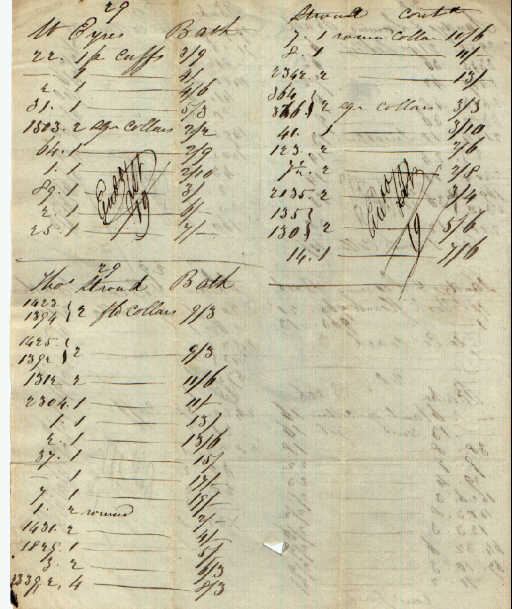 29
Mr Eyres Bath
22. 1 pr cuffs 3/9
— 4 — 4/
2. 1 — 4/6
31. 1 — 5/3
1503. 2 sqr collars 2/2
64. 1 — 2/9
1. 1 — 2/10
89. 1 — 3/
2. 1 — 6/
25. 1 — 7/
29
Thos Stroud Bath
1423
1394 } 2 fld collars 9/3
1425
1392 } 2 — 9/3
1312 2 — 11/6
2304. 1 — 11/
1. 1 — 13/
2. 1 — 13/6
37. 1 — 15/
— 1 — 17/
7. 1 — 18/
1. 2 round 2/
1431. 2 — 4/
1825. 1 — 5/
3. 2 — 6/3
1339. 2. 4 — 8/3
Stroud contd
7. 1 round colla 10/6
8. 1 — 11/
2342. 2 — 13/
364
366 } 2 sqr collars 3/3
41. 1 — 3/10
123. 2 — 2/6
72. 2 — 2/8
2135. 2 — 3/4
135
130 } 2 — 5/6
14. 1 — 7/6